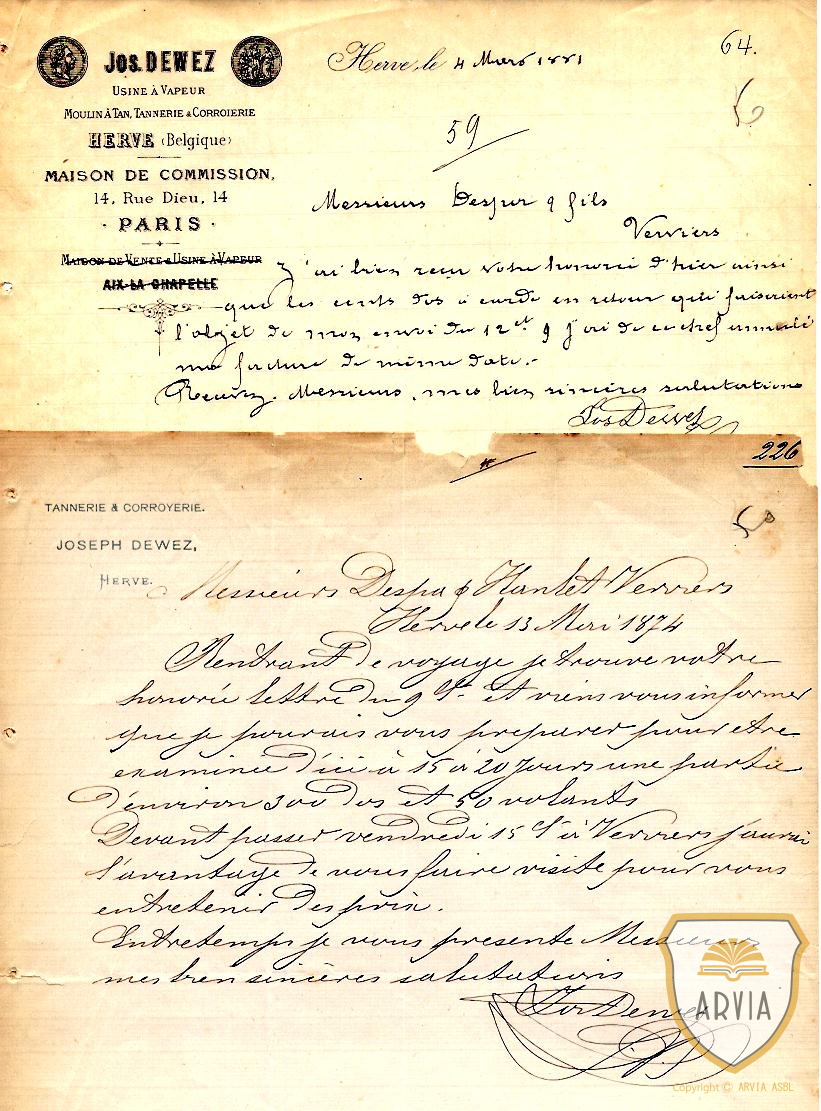 64.
Jos. DEWEZ
Herve, le 4 Mars 1881
USINE À VAPEUR
MOULIN À TAN, TANNERIE & CORROIERIE
HERVE (Belgique)
59
MAISON DE COMMISSION,
14, Rue Dieu, 14
Messieurs Despa & fils
PARIS
Verviers
MAISON DE VENTE & USINE À VAPEUR
AIX-LA-CHAPELLE
J'ai bien reçu votre honorée d'hier ainsi
que les cents dos à carde en retour qui faisaient
l'objet de mon envoi du 12 ct & j'ai de ce chef annulé
ma facture de même date.
Recevez, Messieurs, mes bien sincères salutations
Jos Dewez
226
TANNERIE & CORROYERIE.
JOSEPH DEWEZ,
HERVE.
Messieurs Despa & Hanlet Verviers
Herve le 13 Mai 1874
Rentrant de voyage je trouve votre
honorée lettre du 9 ct et viens vous informer
que je pourais vous préparer pour être
examinée d'ici à 15 à 20 jours une partie
d'environ 300 dos et 50 volants
Devant passer vendredi 15 ct à Verviers j'aurai
l'avantage de vous faire visite pour vous
entretenir des prix.
Entretemps je vous présente Messieurs
mes bien sincères salutations
Jos Dewez
ARVIA
Copyright © ARVIA ASBL